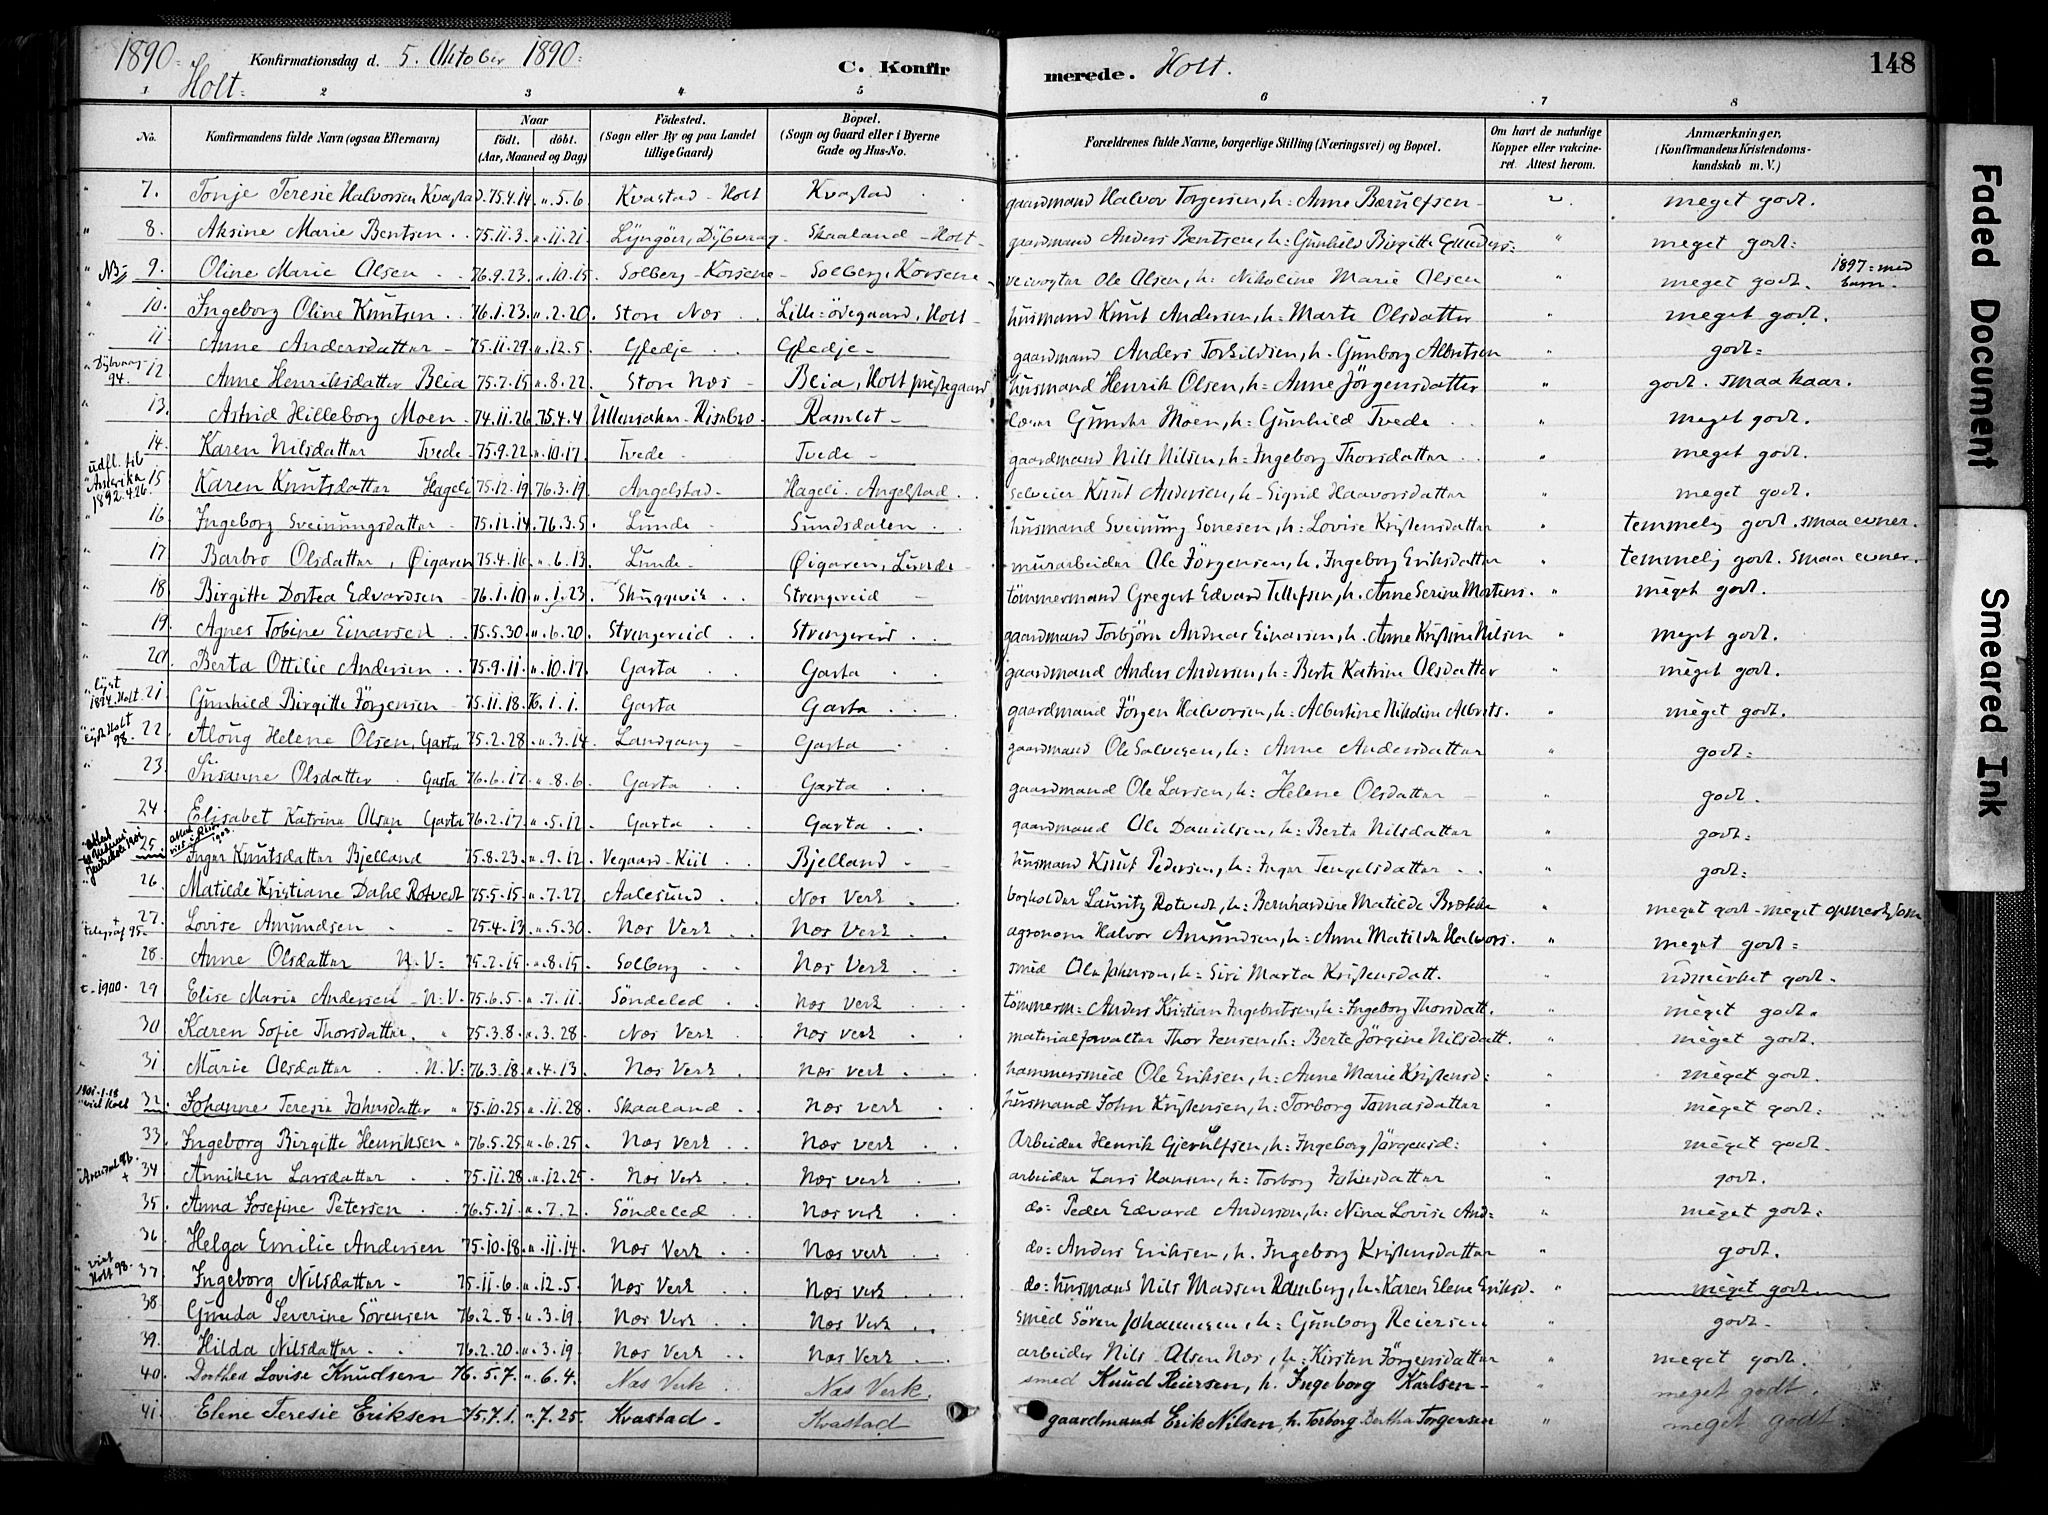 1890. Konfirmationsdag d. 5. Oktober 1890. C. Konfir merede. Holt. 148
Holt.
1 2 3 4 5 6 7 8
No. Konfirmandens fulde Navn (ogsaa Efternavn) Naar født. døbt. (Aar, Maaned og Dag) Fødested. (Sogn eller By og paa Landet tillige Gaard) Bopæl. (Sogn og Gaard eller i Byerne Gade og Hus-No. Forældrenes fulde Navne, borgerlige Stilling (Næringsvei) og Bopæl. Om havt de naturlige Kopper eller vaccineret. Attest herom. Anmærkninger, (Konfirmandens Kristendomskundskab m. V.)
7. Tonje Teresie Halvorsen Kvastad 75.4.14. " 5.6 Kvastad - Holt Kvastad gaardmand Halvor Torgersen, h: Anne Bærulfsen meget godt.
8. Aksine Marie Bentsen 75.11.3. " 11.21 Lyngör, Dybvaag Skaaland - Holt gaardmand Anders Bentsen, h: Gunhild Birgitte Gunders: " meget godt:
NB 9. Oline Marie Olsen 76.9.23. " 10.15. Solberg - Korsene Solberg, Korsene veivogter Ole Olsen, h: Nikoline Marie Olsen " meget godt. 1897 = med barn.
10. Ingeborg Oline Knutsen 76.1.23. " 2.20. Store Næs Lille-ödegaard, Holt husmand Knut Andersen, h: Marte Olsdatter " meget godt.
11. Anne Andersdatter 75.11.29. " 12.5. Gfledje Gfledje gaardmand Anders Torkildsen, h. Gunborg Albretsen " godt:
Dybvaag 94. 12. Anne Henriksdatter Bleia 75.7.15. " 8.22. Store Næs Bleia, Holt prestegaard husmand Henrik Olsen, h: Anne Jörgensdatter " godt. smaa kaar.
13. Astrid Hilleborg Moen 74.11.26 75.4.4 Ullensaker - Risebro Ramlet lærer Gunder Moen, h: Gunhild Tvede " meget godt.
14. Karen Nilsdatter Tvede 75.9.22. " 10.17. Tvede Tvede gaardmand Nils Nilsen, h: Ingeborg Thorsdatter " meget godt.
udfl. til Amerika 1892.4.26. 15. Karen Knutsdatter Hageli 75.12.19 76.3.19 Angelstad Hageli. Angelstad selveier Knut Andersen, h- Sigrid Haavorsdatter " meget godt.
16. Ingeborg Sveinungsdatter 75.12.14. 76.3.5. Lunde Sundsdalen husmand Sveinung Sonesen, h: Lovise Kristensdatter " temmelig godt. smaa evner.
17. Barbro Olsdatter, Øigaren 75.4.16. " 6.13. Lunde Øigaren, Lunde murarbeider Ole Jörgensen, h. Ingeborg Eriksdatter " temmelig godt. smaa evner.
18. Birgitte Dortea Edvardsen 76.1.10. " 1.23. Skuggevik Strengereid tömmermand Gregert Edvard Tellefsen, h. Anne Serine Mortens. " meget godt.
19. Agnes Tobine Einarsen 75.5.30. " 6.20 Strengereid Strengereid gaardmand Torbjörn Andreas Einarsen, h. Anne Kristine Nilsen " meget godt.
20. Berta Ottilie Andersen 75.9.11. " 10.17. Garta Garta gaardmand Anders Andersen, h: Berte Katrine Olsdatter " meget godt.
Lyst 1894. Holt. 21. Gunhild Birgitte Jörgensen 75.11.18. 76.1.1. Garta Garta gaardmand Jörgen Halvorsen, h: Albertine Nikoline Albrets. " meget godt.
Lyst Holt 98. 22. Aloug Helene Olsen, Garta 75.2.28. " 3.14. Landgang Garta gaardmand Ole Salvesen, h: Anne Andersdatter " godt:
23. Susanne Olsdatter Garta 76.6.17. " 8.6. Garta Garta gaardmand Ole Larsen, h: Helene Olsdatter " godt.
24. Elisabet Katrine Olsen Garta 76.2.17. " 5.12 Garta Garta gaardmand Ole Danielsen, h: Berte Nilsdatter " godt:
25. Inger Knutsdatter Bjelland 75.8.23. " 9.12. Vegaard - Kiil Bjelland husmand Knut Pedersen, h: Inger Tengelsdatter " godt:
26. Matilde Kristiane Dahl Rotvedt 75.5.15. " 7.27. Aalesund Næs Verk bogholder Lauritz Rotvedt, h: Bernhardine Matilde Brække " meget godt - meget opmerksom
telegraf 95. 27. Lovise Amundsen 75.4.13. " 5.30. Næs Verk Næs Verk agronom Halvor Amundsen, h: Anne Matilde Halvors. " meget godt:
28. Anne Olsdatter N.V: 75.2.15. " 8.15. Solberg Næs Verk smed Ole Johnson, h: Siri Marta Kristensdatt. udmerket godt.
t. 1900. 29. Elise Marie Andersen N:V. 75.6.5. " 7.11. Söndeled Næs verk tömmerm: Anders Kristian Ingebretsen, h: Ingeborg Thorsdatt. " meget godt.
30. Karen Sofie Thorsdatter " 75.3.8. " 3.28. Næs Verk Næs verk materialforvalter Thor Jensen, h: Berte Jörgine Nilsdatt. " meget godt.
31. Marie Olsdatter N:V: 76.3.18. " 4.13. Næs Verk Næs verk hammersmed Ole Eriksen, h: Anne Marie Kristensd: meget godt.
1901.1.18 viet Holt 32. Johanne Teresie Johnsdatter " 75.10.25. " 11.28. Skaaland Næs verk husmand John Kristensen, h: Torborg Tomasdatter " meget godt:
33. Ingeborg Birgitte Henriksen " 76.5.25. " 6.25. Næs Verk Næs verk Arbeider Henrik Gjerulfsen, h: Ingeborg Jörgensd: " meget godt.
Arendal 96. + 34. Anniken Larsdatter 75.11.28. " 12.25. Næs Verk Næs verk arbeider Lars Hansen, h: Torborg Johnsdatter " godt.
35. Anna Josefine Petersen 76.5.21. " 7.2. Söndeled Næs verk do: Peder Edvard Anderson, h: Nina Lovise And: " meget godt:
36. Helga Emilie Andersen 75.10.18. " 11.14. Næs Verk Næs verk do: Anders Eriksen, h. Ingeborg Kristensdatter " godt.
viet Holt 98. 37. Ingeborg Nilsdatter 75.11.6. " 12.5. Næs Verk Næs verk do: husmand Nils Madsen Ramberg, h. Karen Elene Eriksd. " meget godt
38. Gunda Severine Sörensen 76.2.8. " 3.19. Næs Verk Næs Verk smed Sören Johannesen, h: Gunborg Reiersen " godt.
39. Hilda Nilsdatter 76.2.20. " 3.19. Næs Verk Næs Verk arbeider Nils Olsen Næs, h: Kirsten Jörgensdatter " meget godt.
40. Dorthea Lovise Knudsen 76.5.7. " 6.4. Næs Verk Næs Verk. smed Knud Reiersen, h. Ingeborg Karlsen " meget godt.
41. Elene Teresie Eriksen 75.7.1. " 7.25. Kvastad Kvastad gaardmand Erik Nilsen, h. Torborg Berthe Torgersen " meget godt
Faded Document
Smeared Ink